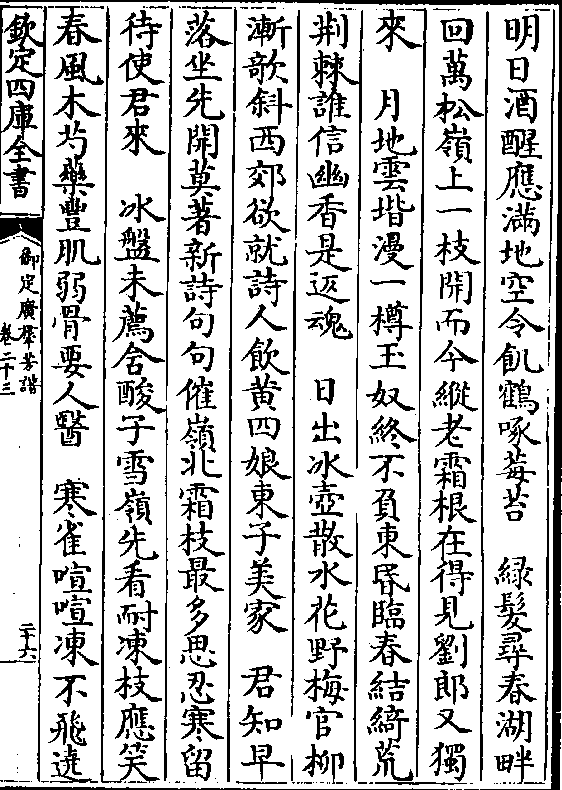 明日酒醒應滿地空令飢鶴啄莓苔　緑髪尋春湖畔
回萬松嶺上一枝開而今縱老霜根在得見劉郎又獨
來　月地雲堦漫一樽玉奴終不負東昏臨春結綺荒
荆棘誰信幽香是返魂　日出冰壺散水花野梅官柳
漸欹斜西郊欲就詩人飲黄四娘東子美家　君知早
落坐先開莫著新詩句句催嶺北霜枝最多思忍寒留
待使君來　冰盤未薦含酸子雪嶺先看耐凍枝應笑
春風木芍藥豐肌弱骨要人醫　寒雀喧喧凍不飛遶
欽定四庫全書
御定廣羣芳譜
卷二十三
二十六